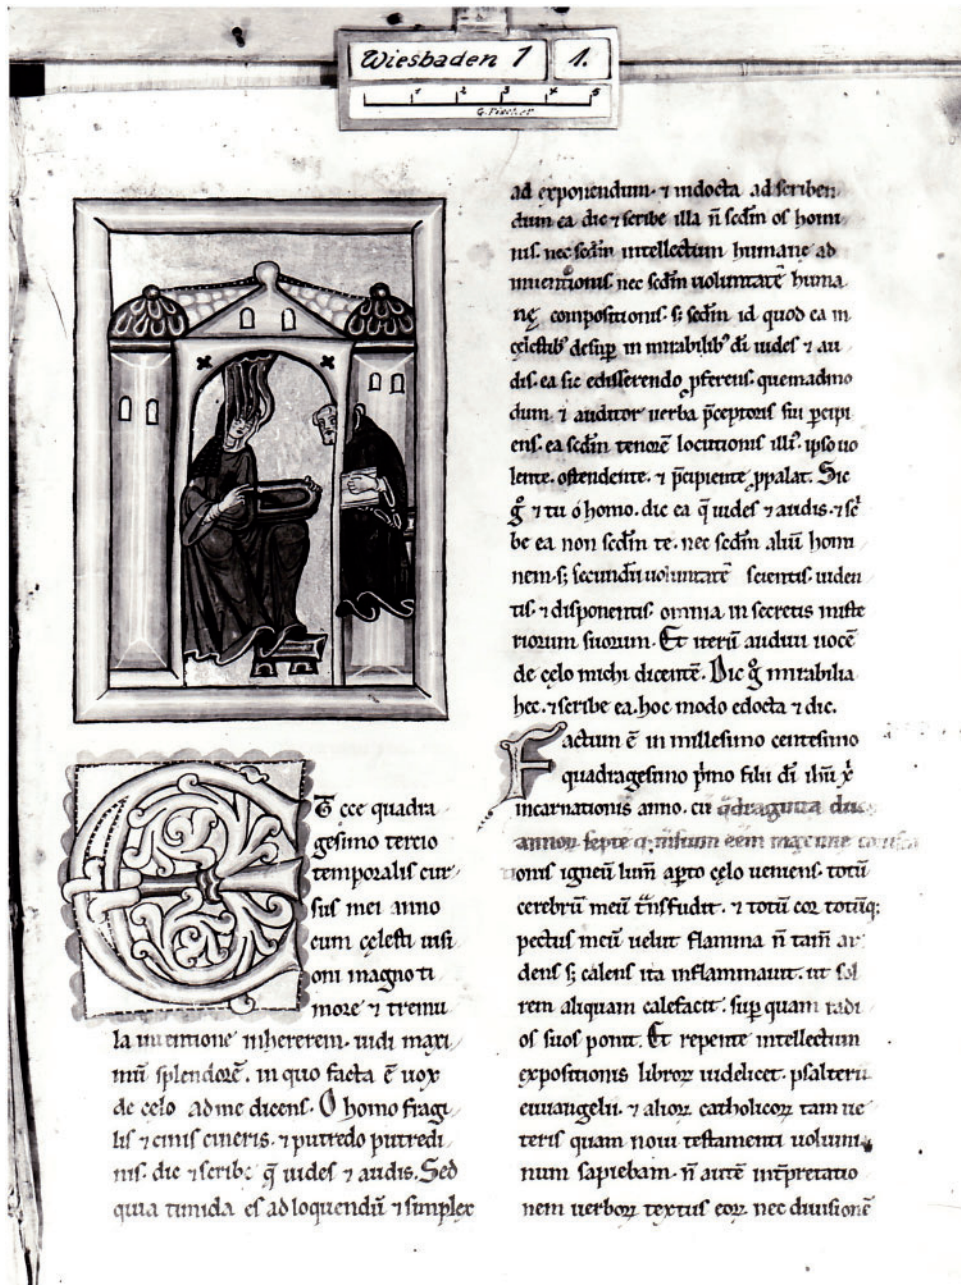 Wiesbaden 1 1.
1 2 3 4 5
Et ecce quadra
gesimo tercio
temporalis cur
sus mei anno
cum cęlesti uisi
oni magno ti
more ⁊ tremu
la intentione inhererem. uidi maxi
mū splendorē. in quo facta ē uox
de cęlo ad me dicens. O homo fragi
lis ⁊ cinis cineris. ⁊ putredo putredi
nis. dic ⁊ scribe q̄ uides ⁊ audis. Sed
quia timida es ad loquendū ⁊ simplex
ad exponendum. ⁊ indocta ad scriben
dum ea dic ⁊ scribe illa n̄ scdm̄ os homi
nis. nec scdm̄ intellectum humane ad
inuentionis. nec scdm̄ uoluntatē huma
nę compositionis. s; scdm̄ id quod ea in
cęlestib' desup̄ in mirabilib' dī uides ⁊ au
dis. ea sic edisserendo ꝓferens. quemadmo
dum ⁊ auditor uerba p̄ceptoris sui ꝑcipi
ens. ea scdm̄ tenorē locutionis illi'. ipso uo
lente. ostendente. ⁊ p̄cipiente ꝓpalat. Sic
gͦ ⁊ tu o homo. dic ea q̄ uides ⁊ audis. ⁊ sc̍
be ea non scdm̄ te. nec scdm̄ aliū homi
nem. s; secundū uoluntatē scientis. uiden
tis. ⁊ disponentis. omnia in secretis miste
riorum suorum. Et iterū audiui uocē
de cęlo michi dicentē. Dic gͦ mirabilia
hec. ⁊ scribe ea. hoc modo edocta ⁊ dic.
Factum ē in millesimo centesimo
quadragesimo p̍mo filii dī ih̄u x̄
incarnationis anno. cū q̄draginta duo
annoꝝ septē q; msium eēm maxime corusca
tionis igneū lum̄ apto cęlo ueniens. totū
cerebrū meū tͣnsfudit. ⁊ totū cor totūq;
pectus meū uelut flamma n̄ tam̄ ar
dens s; calens ita inflammauit. ut sol
rem aliquam calefacit. sup̄ quam radi
os suos ponit. Et repente intellectum
expositionis libroꝝ uidelicet. psalterii
euuangelii. ⁊ alioꝝ catholicoꝝ tam ue
teris quam noui testamenti uolumi
num sapiebam. n̄ autē int̄pretatio
nem uerboꝝ textus eoꝝ nec diuisionē